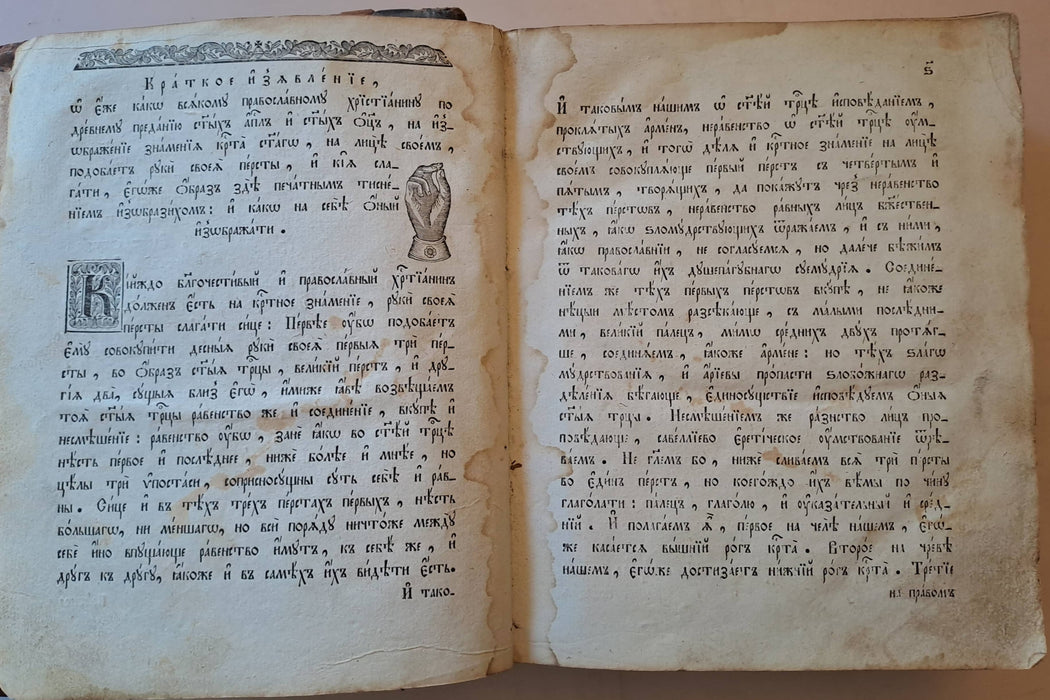 Кра́ткое и҆з̾ѧвле́нїе,
ѡ҆ є҆́же ка́кѡ всѧ́кому правосла́вному хрїстїа́нину по
дре́внему преда́нїю ст҃ы́хъ а҆п҃лъ и҆ ст҃ы́хъ ѻ҆ц҃ъ, на и҆з̾-
ѡбраже́нїе зна́менїѧ кр҃та̀ ст҃а́гѡ, на лицѐ свое́мъ,
подоба́етъ рꙋкѝ своеѧ̀ пе́рсты, и҆ кі́ѧ сла-
га́ти, є҆гѡ́же ѻ҆́бразъ здѣ̀ печа́тнымъ тисне́-
нїемъ и҆з̾ѡбрази́хомъ: и҆ ка́кѡ на себѣ̀ ѻ҆́ный
и҆з̾ѡбража́ти.
Кі́йждо бл҃гочести́вый и҆ правосла́вный хр҃тїа́нин
до́лженъ є҆́сть на кр҃тное зна́менїе, рꙋкѝ своеѧ̀
пе́рсты слага́ти си́це: Пе́рвѣе ᲂу҆́бѡ подоба́етъ
є҆мꙋ̀ совокꙋпи́ти десны́ѧ рꙋкѝ своеѧ̀ пе́рвыѧ трѝ пер-
сты̀, во ѻ҆́бразъ ст҃ы́ѧ трⷪ҇цы, вели́кїй пе́рстъ, и҆ дрꙋ-
гі́ѧ два̀, сꙋ́щыѧ бли́з̾ є҆гѡ̀, и҆́миже ꙗ҆́вѣ возвѣща́емъ
тоѧ̀ ст҃ы́ѧ трⷪ҇цы ра́венство же и҆ соедине́нїе, вкꙋ́пѣ и҆
несмѣше́нїе: ра́венство ᲂу҆́бѡ, занѐ ꙗ҆́кѡ во ст҃ѣ́й трⷪ҇цѣ
нѣ́сть пе́рвое и҆ послѣ́днее, нижѐ бо́лѣе и҆ мнѣ́е, но
цѣ́лы трѝ ѵ҆поста́си, соприсносꙋ́щны сꙋ́ть себѣ̀ и҆ рав-
ны̀. Си́це и҆ въ тѣ́хъ тре́хъ пе́рстахъ пе́рвыхъ, нѣ́сть
бо́льшагѡ, ни ме́ншагѡ, но всѝ порѧ́дꙋ ничто́же междꙋ̀
себѐ и҆́но впꙋща́юще ра́венство и҆́мꙋтъ, къ себѣ́ же, и҆
дрꙋ́гъ къ дрꙋ́гꙋ, ꙗ҆́коже и҆ въ самѣ́хъ и҆́хъ ви́дѣти є҆́сть.
И҆ тако-
ѕ҃
И҆ таковы́мъ на́шимъ ѡ҆ ст҃ѣ́й трⷪ҇цѣ и҆сповѣ́данїемъ,
проклѧ́тыхъ а҆рме́нъ, нера́венство ѡ҆ ст҃ѣ́й трⷪ҇цѣ ᲂу҆м-
ствꙋ́ющихъ, и҆ тогѡ̀ дѣ́лѧ и҆ кр҃тное зна́менїе на лицѣ̀
свое́мъ совокꙋплѧ́юще пе́рвый пе́рстъ съ четве́ртымъ и҆
пѧ́тымъ, творѧ́щихъ, да пока́жꙋтъ чрез̾ нера́венство
тѣ́хъ пе́рстѡвъ, нера́венство ра́вныхъ ли́цъ бж҃е́ствен-
ныхъ, ꙗ҆́кѡ ѕломꙋ́дрствꙋющихъ ѿража́емъ, и҆ съ ни́ми,
ꙗ҆́кѡ правосла́внїи, не соглаcꙋ́емсѧ, но дале́че бѣжи́мъ
ѿ такова́гѡ и҆́хъ дꙋшепа́гꙋбнагѡ сꙋемꙋ́дрїѧ. Соедине́-
нїемъ же тѣ́хъ пе́рвыхъ пе́рстѡвъ вкꙋ́пѣ, не ꙗ҆́коже
нѣ́цыи мѣ́стомъ разсѣка́юще, съ ма́лыми послѣ́дни-
ми, вели́кїй па́лецъ, ми́мѡ сре́днихъ двꙋ́хъ протѧ́г-
ше, соединѧ́емъ, ꙗ҆́коже а҆рме́не: но тѣ́хъ ѕла́гѡ
мꙋ́дрствованїѧ, и҆ а҆рі́евы про́пасти ѕлобо́жнагѡ раз-
дѣле́нїѧ бѣ́гающе, є҆диносꙋ́щстїе и҆сповѣ́дꙋемъ ѻ҆́ныѧ
ст҃ы́ѧ трⷪ҇цы. Несмѣше́нїемъ же ра́знство ли́цъ про-
повѣ́дающе, саве́ллїево є҆рети́ческое ᲂу҆́мствованїе ѿрѣ-
ва́емъ. Не гл҃емъ бо, нижѐ слива́емъ всѧ̀ трѝ пе́рсты
во є҆ди́нъ пе́рстъ, но коего́ждо и҆́хъ вѣ́мы по чи́нꙋ
глаго́лати: па́лецъ, глаго́лю, и҆ ᲂу҆каза́тельный и҆ сре́д-
нїй. И҆ полага́емъ ѧ҆̀, пе́рвое на челѣ̀ на́шемъ, є҆гѡ́-
же каса́етсѧ вы́шнїй ро́гъ кр҃та̀. Второ́е на чре́вѣ
на́шемъ, є҆гѡ́же достиза́етъ ни́жнїй ро́гъ кр҃та̀. Тре́тїе
на пра́вомъ